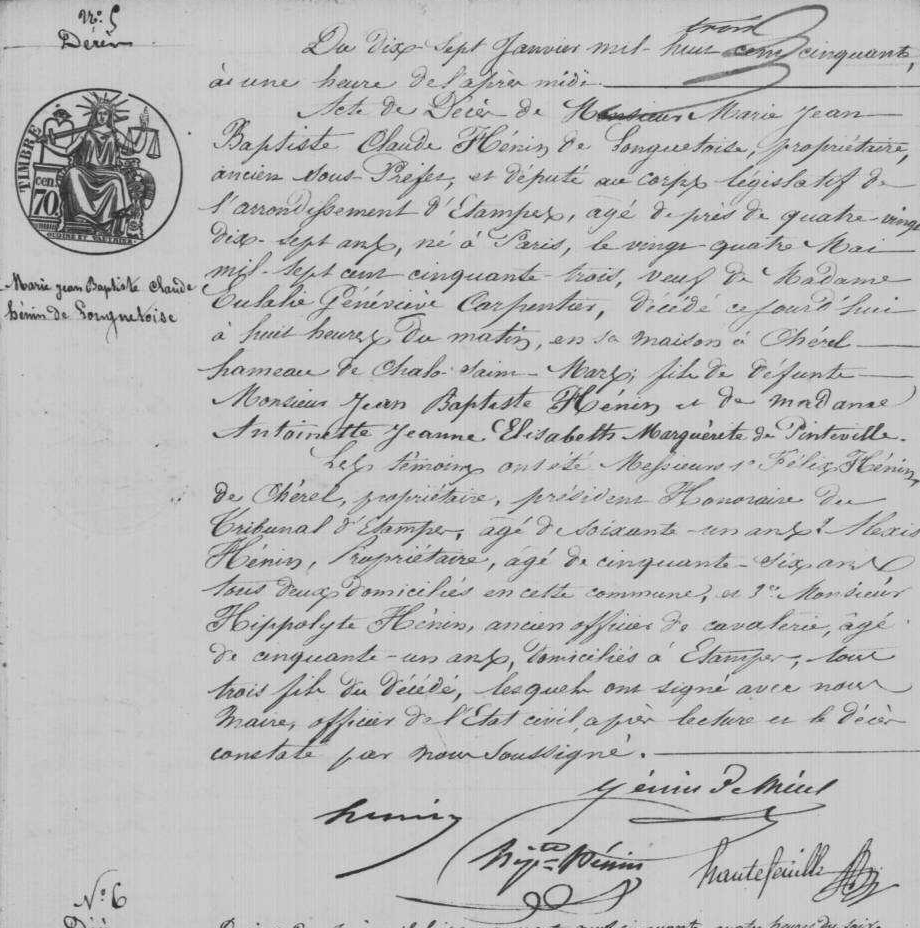 N° 5
Décès
Du dix-sept Janvier mil huit cent cinquante,
à une heure de l'après midi
Acte de Décès de Monsieur Marie Jean
Baptiste Claude Hénin de Longuetoise, propriétaire,
ancien Sous-Préfet, et député au corps législatif de
l'arrondissement d'Etampes, agé de près de quatre-vingt
dix-sept ans, né à Paris, le vingt quatre Mai
mil-sept cent cinquante-trois, veuf de Madame
Eulalie Généviève Carpentier, décédé ce jourd'hui
à huit heures du matin, en sa maison à Chérel
hameau de Chalo-Saint-Mars, fils de défunts
Monsieur Jean Baptiste Hénin et de madame
Antoinette Jeanne Elisabeth Marguerete de Pinteville.
Les témoins ont été Messieurs 1° Félix Hénin
de Chérel, propriétaire, président Honoraire du
Tribunal d'Etampes, agé de soixante-un ans, Alexis
Hénin, Propriétaire, agé de cinquante-six ans
tous deux domiciliés en cette commune, et 3° Monsieur
Hippolyte Hénin, ancien officier de cavalerie, âgé
de cinquante-un ans, domiciliés à Etampes, tous
trois fils du décédé, lesquels ont signé avec nous
Maire, officier de l'Etat civil, après lecture et le décès
constaté par nous soussigné.
TIMBRE
70 cen
Marie Jean Baptiste Claude
hénin de Longuetoise
hénin
hyte Hénin
hautefeuille
N° 6